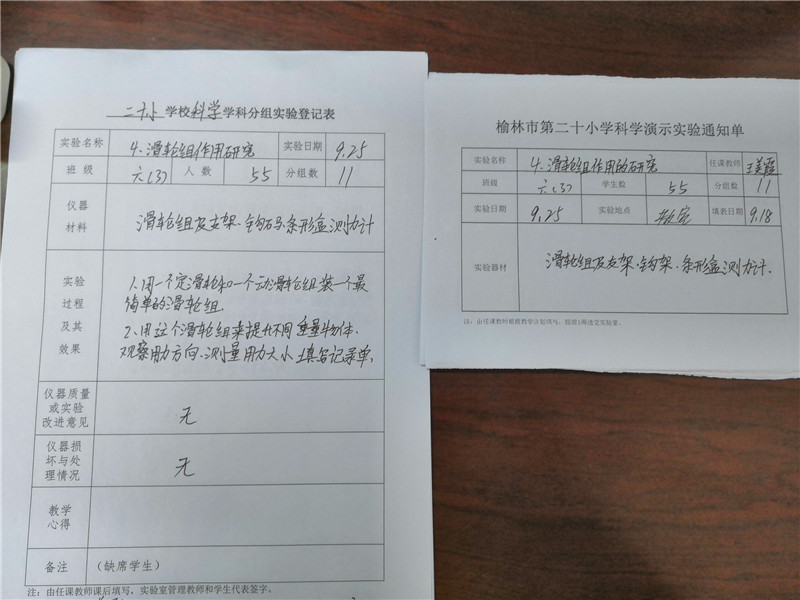 二十小学校科学学科分组实验登记表
实验名称 4、滑轮组作用研究 实验日期 9.25
班级 六(3) 人数 55 分组数 11
仪器
材料
滑轮组及支架、钩码、条形盒测力计
实验
过程
及其
效果
1.用一个定滑轮和一个动滑轮组装一个最
简单的滑轮组.
2、用这个滑轮组来提升不同重量物体,
观察用力方向、测量用力大小 填写记录单.
仪器质量
或实验
改进意见
无
仪器损
坏与处
理情况
无
教学
心得
备注 (缺席学生)
注:由任课教师课后填写,实验室管理教师和学生代表签字。
榆林市第二十小学科学演示实验通知单
实验名称 4、滑轮组作用的研究 任课教师
班级 六(3) 学生数 55 分组数 11
实验日期 9.25 实验地点 教室 填表日期 9.18
实验器材 滑轮组及支架、钩架、条形盒测力计.
注:由任课教师根据教学计划填写,提前1周送交实验室。